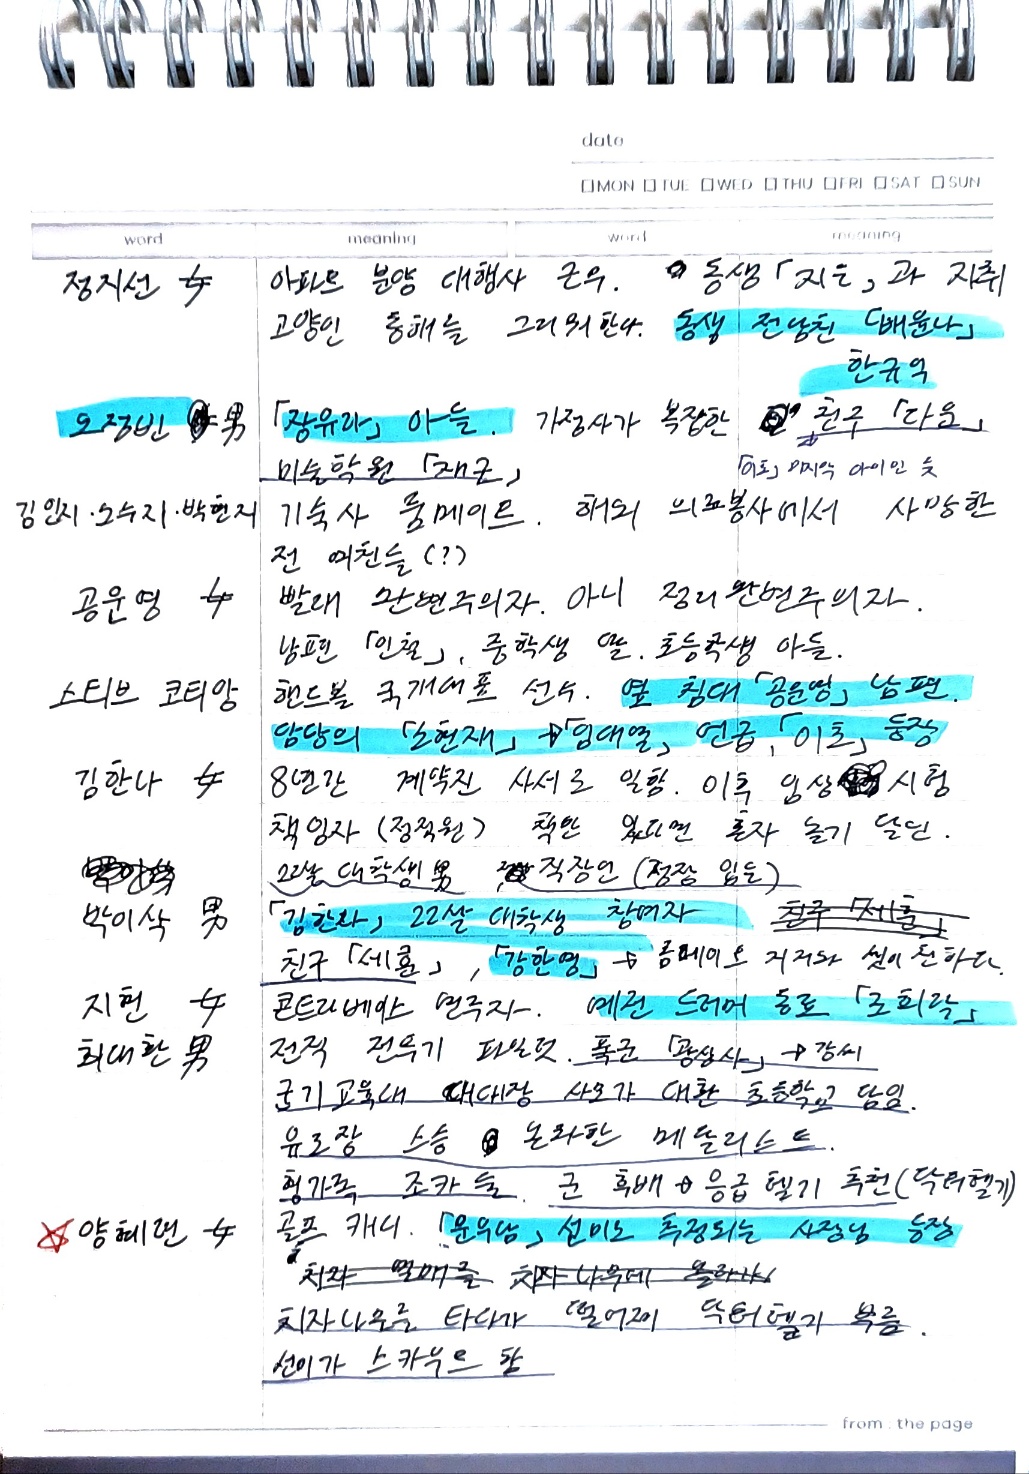 date
□MON □TUE □WED □THU □FRI □SAT □SUN
word meaning word meaning
정지선 女 아파트 분양 대행사 근무. 동생「지은」과 자취
고양인 동해를 그리워한다. 동생 전남친「배윤나」
한규익
오정빈 男 「장유라」아들. 가정사가 복잡한 친구「다운」
미술학원「재근」 「이호」 마지막 아이인 듯
김인지·오수지·박현지 기숙사 룸메이트. 해외 의료봉사에서 사망한
전 여친들(?)
공운영 女 빨래 완벽주의자. 아니 정리 완벽주의자.
남편「인철」, 중학생 딸. 초등학생 아들.
스티브 코티앙 핸드볼 국가대표 선수. 옆 침대「공운영」남편.
담당의「소현재」→「임대열」언급,「이호」등장
김한나 女 8년간 계약직 사서로 일함. 이후 임상 시험
책임자(정직원) 책만 있으면 혼자 놀기 달인.
22살 대학생 男 직장인(정장 입은)
박이삭 男 「김한나」22살 대학생 참여자 친구「세훈」
친구「세훈」,「강한영」→ 룸메이트
지현 女 콘트라베이스 연주자. 예전 드러머 동료「조희락」
최대환 男 전직 전투기 파일럿. 폭군「광상사」→강씨
군기교육대 대대장 사모가 대환 초등학교 담임.
스승 논화한 메달리스트.
형가족 조카들. 군 후배→응급헬기 추천(닥터헬기)
☆양혜련 女 골프 캐디.「윤우남」선미로 추정되는 사장님 등장
치자 열매를 치자나무에 올라가
치자나무를 타다가 떨어져 닥터헬기 부름.
선미가 스카우트 함
from . the page